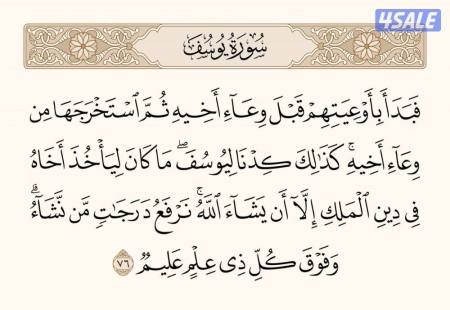 4SALE
سُورَةُ يُوسُفَ
فَبَدَأَ بِأَوْعِيَتِهِمْ قَبْلَ وِعَآءِ أَخِيهِ ثُمَّ ٱسْتَخْرَجَهَا مِن
وِعَآءِ أَخِيهِ ۚ كَذَٰلِكَ كِدْنَا لِيُوسُفَ ۖ مَا كَانَ لِيَأْخُذَ أَخَاهُ
فِى دِينِ ٱلْمَلِكِ إِلَّآ أَن يَشَآءَ ٱللَّهُ ۚ نَرْفَعُ دَرَجَٰتٍ مَّن نَّشَآءُ ۗ
وَفَوْقَ كُلِّ ذِى عِلْمٍ عَلِيمٌ ٧٦